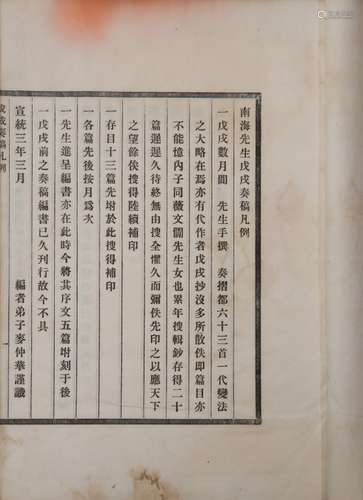 南海先生戊戌奏稿凡例
一戊戌數月間　先生手撰　奏摺都六十三首一代變法
之大略在焉亦有代作者戊戌抄沒多所散佚即篇目亦
不能憶內子同薇文僴先生女也累年搜輯鈔存得二十
篇遲遲久待終無由搜全懼久而彌佚先印之以應天下
之望餘俟搜得陸續補印
一存目十三篇先坿於此搜得補印
一各篇先後按月爲次
一先生進呈編書亦在此時今將其序文五篇坿刻于後
一戊戌前之奏稿編書已久刊行故今不具
宣統三年三月　編者弟子麥仲華謹識
戊戌奏稿凡例　一